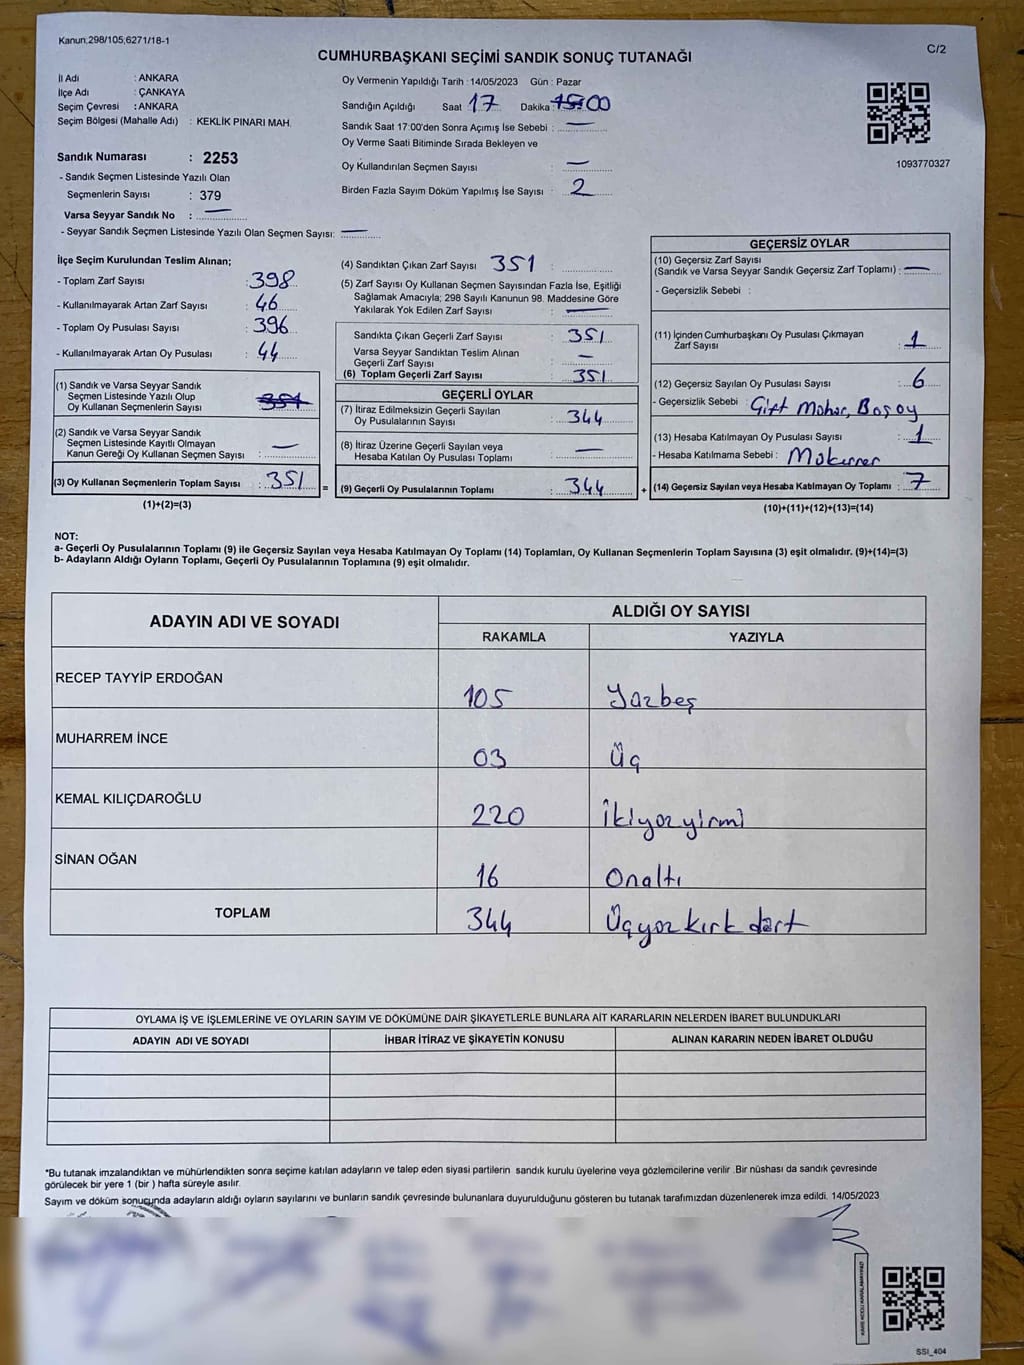 Kanun;298/105;6271/18-1
C/2
CUMHURBAŞKANI SEÇİMİ SANDIK SONUÇ TUTANAĞI
İl Adı : ANKARA
İlçe Adı : ÇANKAYA
Seçim Çevresi : ANKARA
Seçim Bölgesi (Mahalle Adı) : KEKLİK PINARI MAH.
Sandık Numarası : 2253
- Sandık Seçmen Listesinde Yazılı Olan
Seçmenlerin Sayısı : 379
Varsa Seyyar Sandık No : —
- Seyyar Sandık Seçmen Listesinde Yazılı Olan Seçmen Sayısı: —
Oy Vermenin Yapıldığı Tarih : 14/05/2023 Gün : Pazar
Sandığın Açıldığı Saat 17 Dakika : 00
Sandık Saat 17:00'den Sonra Açımış İse Sebebi : —
Oy Verme Saati Bitiminde Sırada Bekleyen ve
Oy Kullandırılan Seçmen Sayısı —
Birden Fazla Sayım Döküm Yapılmış İse Sayısı : 2
1093770327
İlçe Seçim Kurulundan Teslim Alınan;
- Toplam Zarf Sayısı : 398
- Kullanılmayarak Artan Zarf Sayısı : 46
- Toplam Oy Pusulası Sayısı : 396
- Kullanılmayarak Artan Oy Pusulası : 44
(1) Sandık ve Varsa Seyyar Sandık
Seçmen Listesinde Yazılı Olup
Oy Kullanan Seçmenlerin Sayısı 351
(2) Sandık ve Varsa Seyyar Sandık
Seçmen Listesinde Kayıtlı Olmayan
Kanun Gereği Oy Kullanan Seçmen Sayısı : —
(3) Oy Kullanan Seçmenlerin Toplam Sayısı : 351 =
(1)+(2)=(3)
(4) Sandıktan Çıkan Zarf Sayısı 351 :
(5) Zarf Sayısı Oy Kullanan Seçmen Sayısından Fazla İse, Eşitliği
Sağlamak Amacıyla; 298 Sayılı Kanunun 98. Maddesine Göre
Yakılarak Yok Edilen Zarf Sayısı : —
Sandıkta Çıkan Geçerli Zarf Sayısı : 351
Varsa Seyyar Sandıktan Teslim Alınan
Geçerli Zarf Sayısı : —
(6) Toplam Geçerli Zarf Sayısı : 351
GEÇERLİ OYLAR
(7) İtiraz Edilmeksizin Geçerli Sayılan
Oy Pusulalarının Sayısı : 344
(8) İtiraz Üzerine Geçerli Sayılan veya
Hesaba Katılan Oy Pusulası Toplamı : —
(9) Geçerli Oy Pusulalarının Toplamı : 344 +
GEÇERSİZ OYLAR
(10) Geçersiz Zarf Sayısı
(Sandık ve Varsa Seyyar Sandık Geçersiz Zarf Toplamı) : —
- Geçersizlik Sebebi :
(11) İçinden Cumhurbaşkanı Oy Pusulası Çıkmayan
Zarf Sayısı : 1
(12) Geçersiz Sayılan Oy Pusulası Sayısı : 6
- Geçersizlik Sebebi : Çift Mühür, Boş oy
(13) Hesaba Katılmayan Oy Pusulası Sayısı : 1
- Hesaba Katılmama Sebebi : Mükerrer
(14) Geçersiz Sayılan veya Hesaba Katılmayan Oy Toplamı : 7
(10)+(11)+(12)+(13)=(14)
NOT:
a- Geçerli Oy Pusulalarının Toplamı (9) ile Geçersiz Sayılan veya Hesaba Katılmayan Oy Toplamı (14) Toplamları, Oy Kullanan Seçmenlerin Toplam Sayısına (3) eşit olmalıdır. (9)+(14)=(3)
b- Adayların Aldığı Oyların Toplamı, Geçerli Oy Pusulalarının Toplamına (9) eşit olmalıdır.
ADAYIN ADI VE SOYADI ALDIĞI OY SAYISI
RAKAMLA YAZIYLA
RECEP TAYYİP ERDOĞAN 105 Yüzbeş
MUHARREM İNCE 03 Üç
KEMAL KILIÇDAROĞLU 220 İkiyüzyirmi
SİNAN OĞAN 16 Onaltı
TOPLAM 344 Üçyüz kırk dört
OYLAMA İŞ VE İŞLEMLERİNE VE OYLARIN SAYIM VE DÖKÜMÜNE DAİR ŞİKAYETLERLE BUNLARA AİT KARARLARIN NELERDEN İBARET BULUNDUKLARI
ADAYIN ADI VE SOYADI İHBAR İTİRAZ VE ŞİKAYETİN KONUSU ALINAN KARARIN NEDEN İBARET OLDUĞU
*Bu tutanak imzalandıktan ve mühürlendikten sonra seçime katılan adayların ve talep eden siyasi partilerin sandık kurulu üyelerine veya gözlemcilerine verilir .Bir nüshası da sandık çevresinde
görülecek bir yere 1 (bir ) hafta süreyle asılır.
Sayım ve döküm sonucunda adayların aldığı oyların sayılarını ve bunların sandık çevresinde bulunanlara duyurulduğunu gösteren bu tutanak tarafımızdan düzenlenerek imza edildi. 14/05/2023
KARE KODU KARALAMAYINIZ!
SSI_404